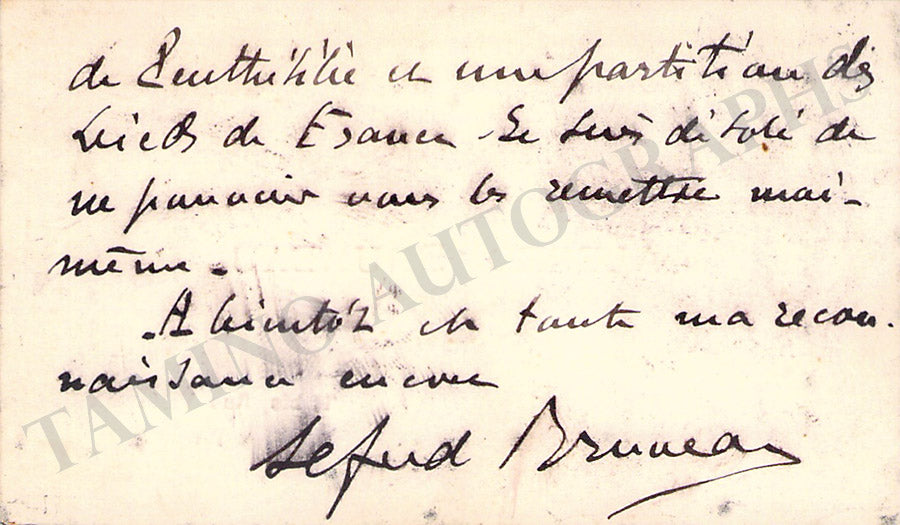 de Penthésilée et une partition des
Lieds de France. Je suis désolé de
ne pouvoir vous les remettre moi-
même.
A bientôt et toute ma recon-
naissance encore
Alfred Bruneau
TAMINO AUTOGRAPHS